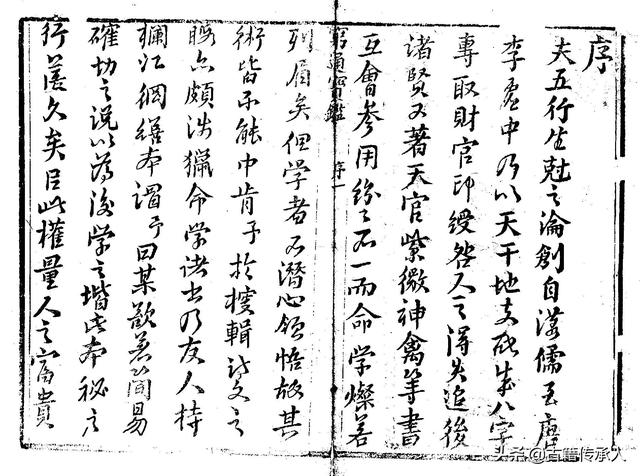 序
夫五行生尅之論創自漢儒至唐
李虛中乃以天干地支配成八字
專取財官印綬咎人之得失追後
諸賢又著天官紫微神禽等書
互會參用紛々不一而命學燦若
窮通寶鑑 序一
列眉矣但學者不潛心領悟故其
術皆不能中肯予於輯詩文之
暇亦頗涉獵命學諸書乃友人持
欄江網繕本謂予曰某歡其簡易
確切之說以為後學之楷本秘之
行篋久矣此權量人之富貴
头条@古籍传承人